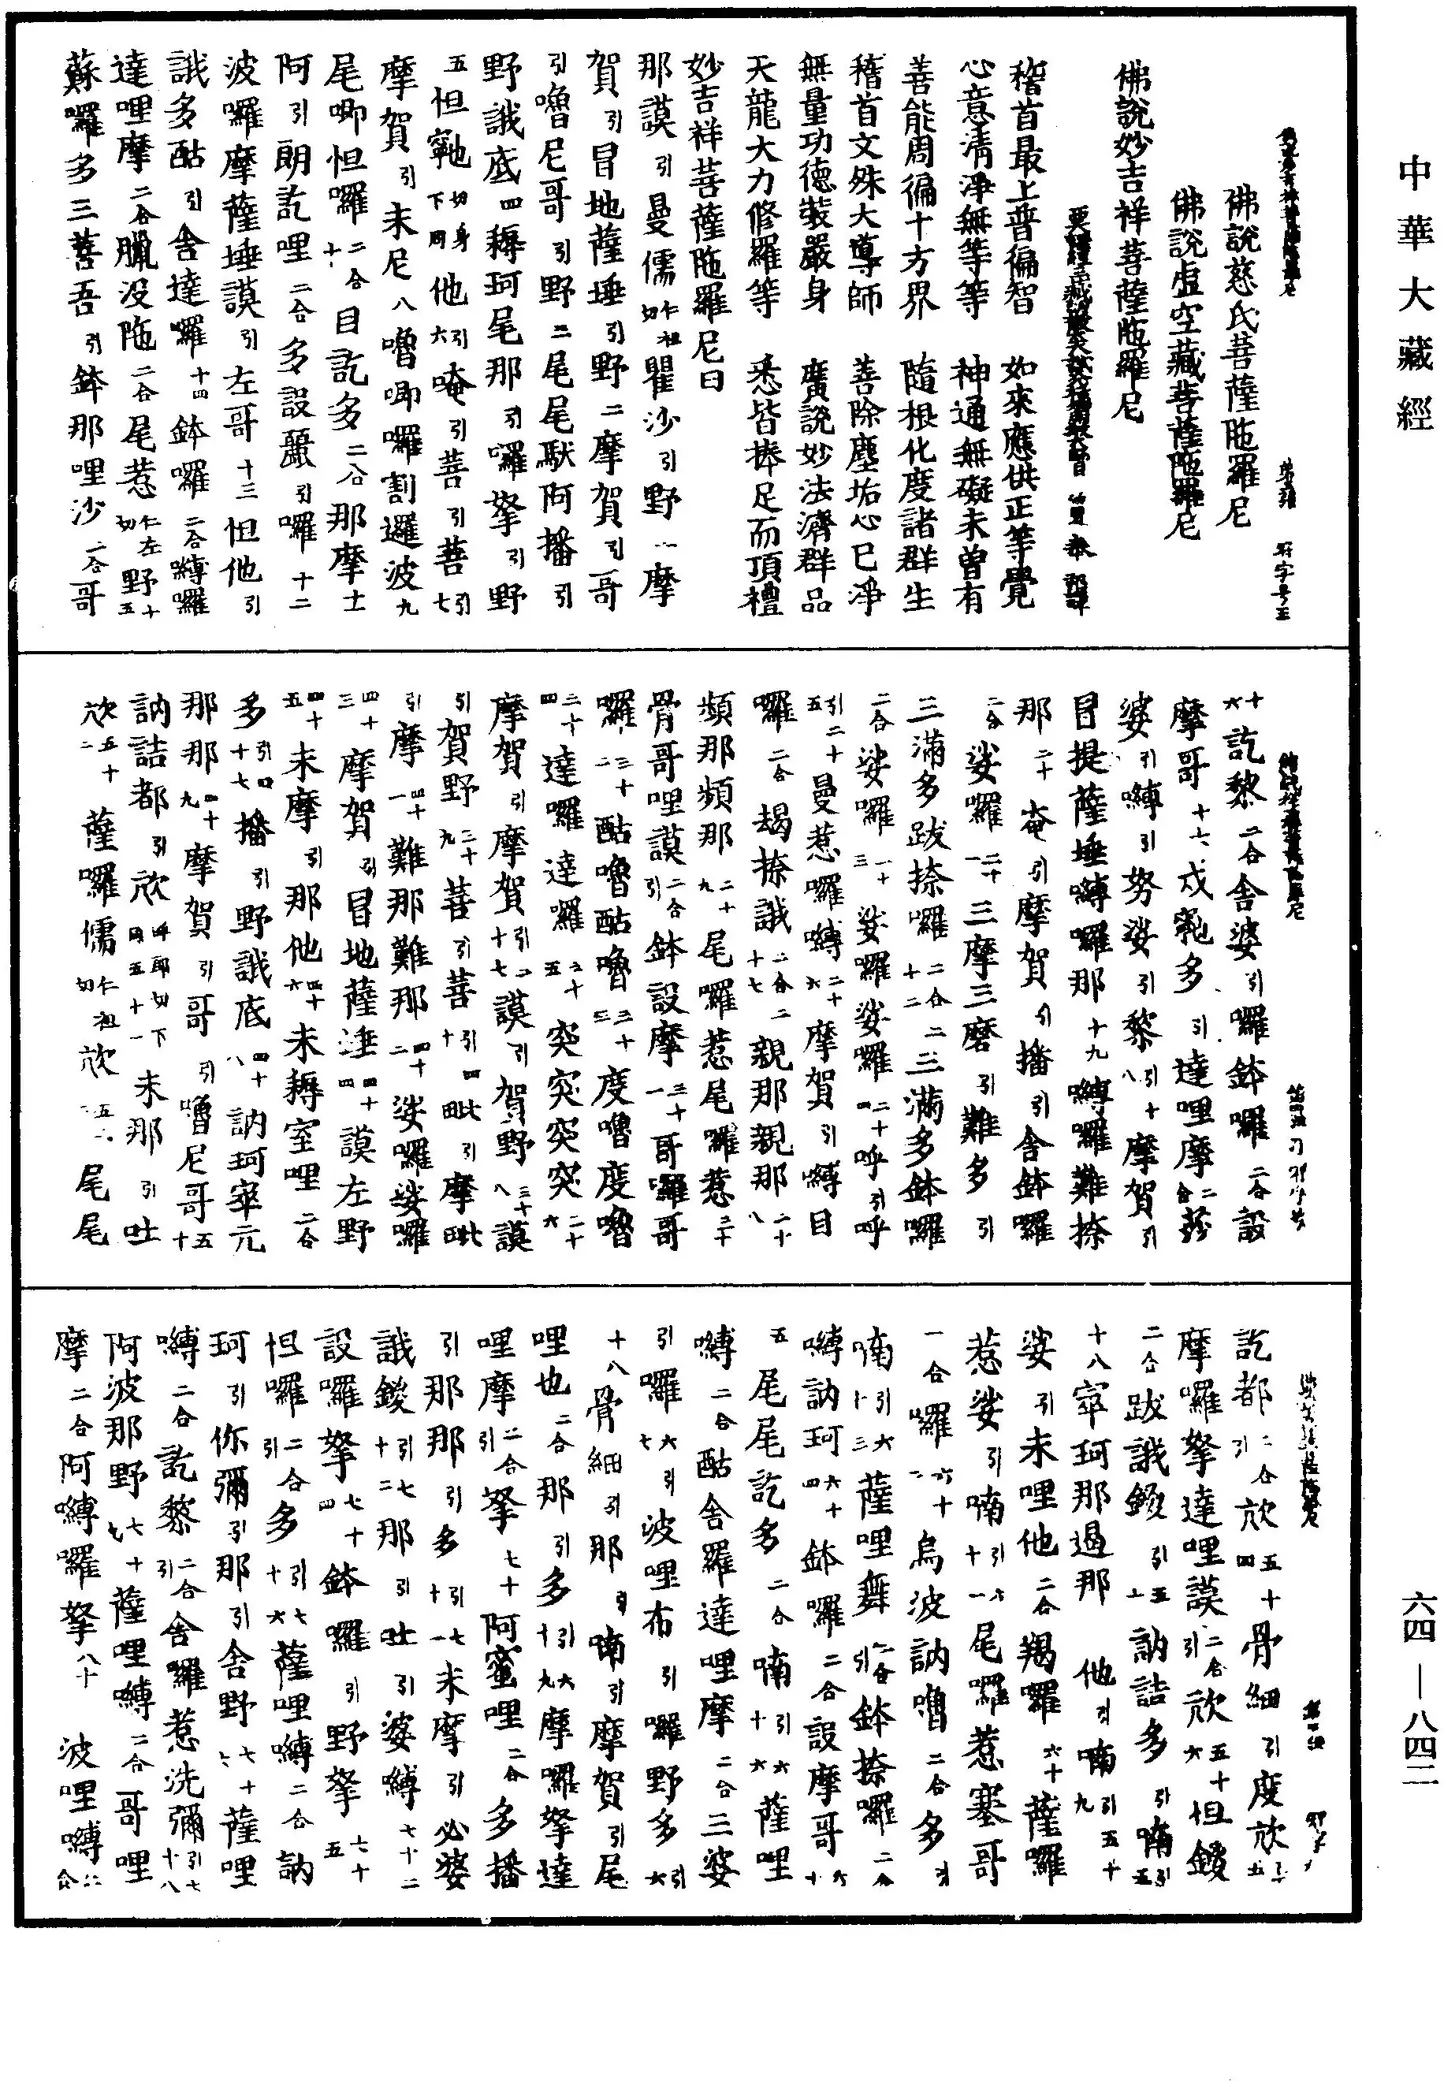 中華大藏經
六四—八四二
佛說慈氏菩薩陁羅尼
佛說虛空藏菩薩陁羅尼
佛說妙吉祥菩薩陁羅尼
稽首最上普徧智 如來應供正等覺
心意清淨無等等 神通無礙未曾有
善能周徧十方界 隨根化度諸群生
稽首文殊大導師 善除塵垢心已淨
無量功德裝嚴身 廣說妙法濟群品
天龍大力修羅等 悉皆捧足而頂禮
妙吉祥菩薩陁羅尼曰
那謨引曼儒仁祖切瞿沙引野一摩
賀引冒地薩埵引野二摩賀引哥
引嚕尼哥引野三尾尾馱阿播引
野誐底四耨珂尾那引囉拏引野
五怛寧也切身下同他引六唵引菩引菩引七
摩賀引末尼八嚕唧囉割邏波九
尾唧怛囉二合十目訖多二合那摩十一
阿引朗訖哩二合多設麗引囉十二
波囉摩薩埵謨引左哥十三怛他引
誐多酤引舍達囉十四鉢囉二合嚩囉
達哩摩二合臘没陁二合尾惹仁左切野十五
蘇囉多三菩吾引鉢那哩沙二合哥
十六訖黎二合舍婆引囉鉢囉二合設
摩哥十七戍寧也多引達哩摩二合
婆引嚩引努娑引黎引十八摩賀引
冒提薩埵嚩囉那十九嚩囉難捺
那二十唵引摩賀引播引舍鉢囉
二合娑囉二十一三摩三磨引難多引
三滿多跋捺囉二合二十二三滿多鉢囉
二合娑囉二十三娑囉娑囉二十四呼引呼
引二十五曼惹囉嚩二十六摩賀引嚩目
囉二合朅捺誐二合二十七親那親那二十八
頻那頻那二十九尾囉惹尾囉惹三十
骨哥哩謨引二合鉢設摩三十一哥囉哥
囉三十二酤嚕酤嚕三十三度嚕度嚕
三十四達囉達囉三十五突突突突三十六
摩賀引摩賀引三十七謨引賀野三十八謨
引賀野三十九菩引菩引四十毗引摩毗
引摩四十一難那難那四十二娑囉娑囉
四十三摩賀引冒地薩埵四十四謨左野
四十五末摩引那他四十六末耨室哩二合
多引四十七播引野誐底四十八訥珂窣元
那那四十九摩賀引哥引嚕尼哥五十
訥詰都引㰠五十一末那引吐
㰠五十二薩囉儒仁祖切㰠五十三尾尾
訖都引二合㰠五十四骨細引度㰠五十五
摩囉拏達哩謨引二合㰠五十六怛鍐
二合跋誐鍐引五十七訥詰多引喃引五
十八窣珂那過那他引喃引五十九
娑引末哩他二合羯囉六十薩囉
惹娑引喃引六十一尾囉惹塞哥
一合囉六十二烏波訥嚕二合多引
喃引六十三薩哩舞引二合鉢捺囉二合
嚩訥珂六十四鉢囉二合設摩哥六十
五尾尾訖多二合喃引六十六薩哩
嚩二合酤舍羅達哩摩二合三婆
引囉六十七引波哩布引囉野多引六
十八骨細引那引喃引摩賀引尾
哩也二合那引多引六十九摩囉拏達
哩摩引二合拏七十阿蜜哩二合多播
引那那引多引七十一末摩引必婆
誐鍐引七十二那引吐引婆嚩七十三
設囉拏七十四鉢囉引野拏七十五
怛囉二合引多引七十六薩哩嚩二合訥
珂引你彌引那引舍野七十七薩哩
嚩二合訖黎二合引舍羅惹洗彌引七十八
阿波那野七十九薩哩嚩二合哥哩
摩二合阿嚩囉拏八十波哩嚩二合